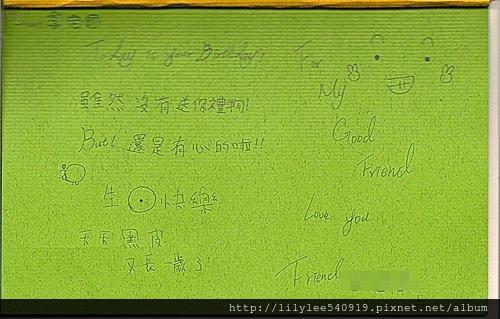 Today is your Birthday!
雖然 沒有送你禮物!
But! 還是有心的啦!!
生⊙快樂
天天黑皮
又長一歲了
For
My
Good
Friend
Love you
Friend
http://lilylee540919.pixnet.net/album